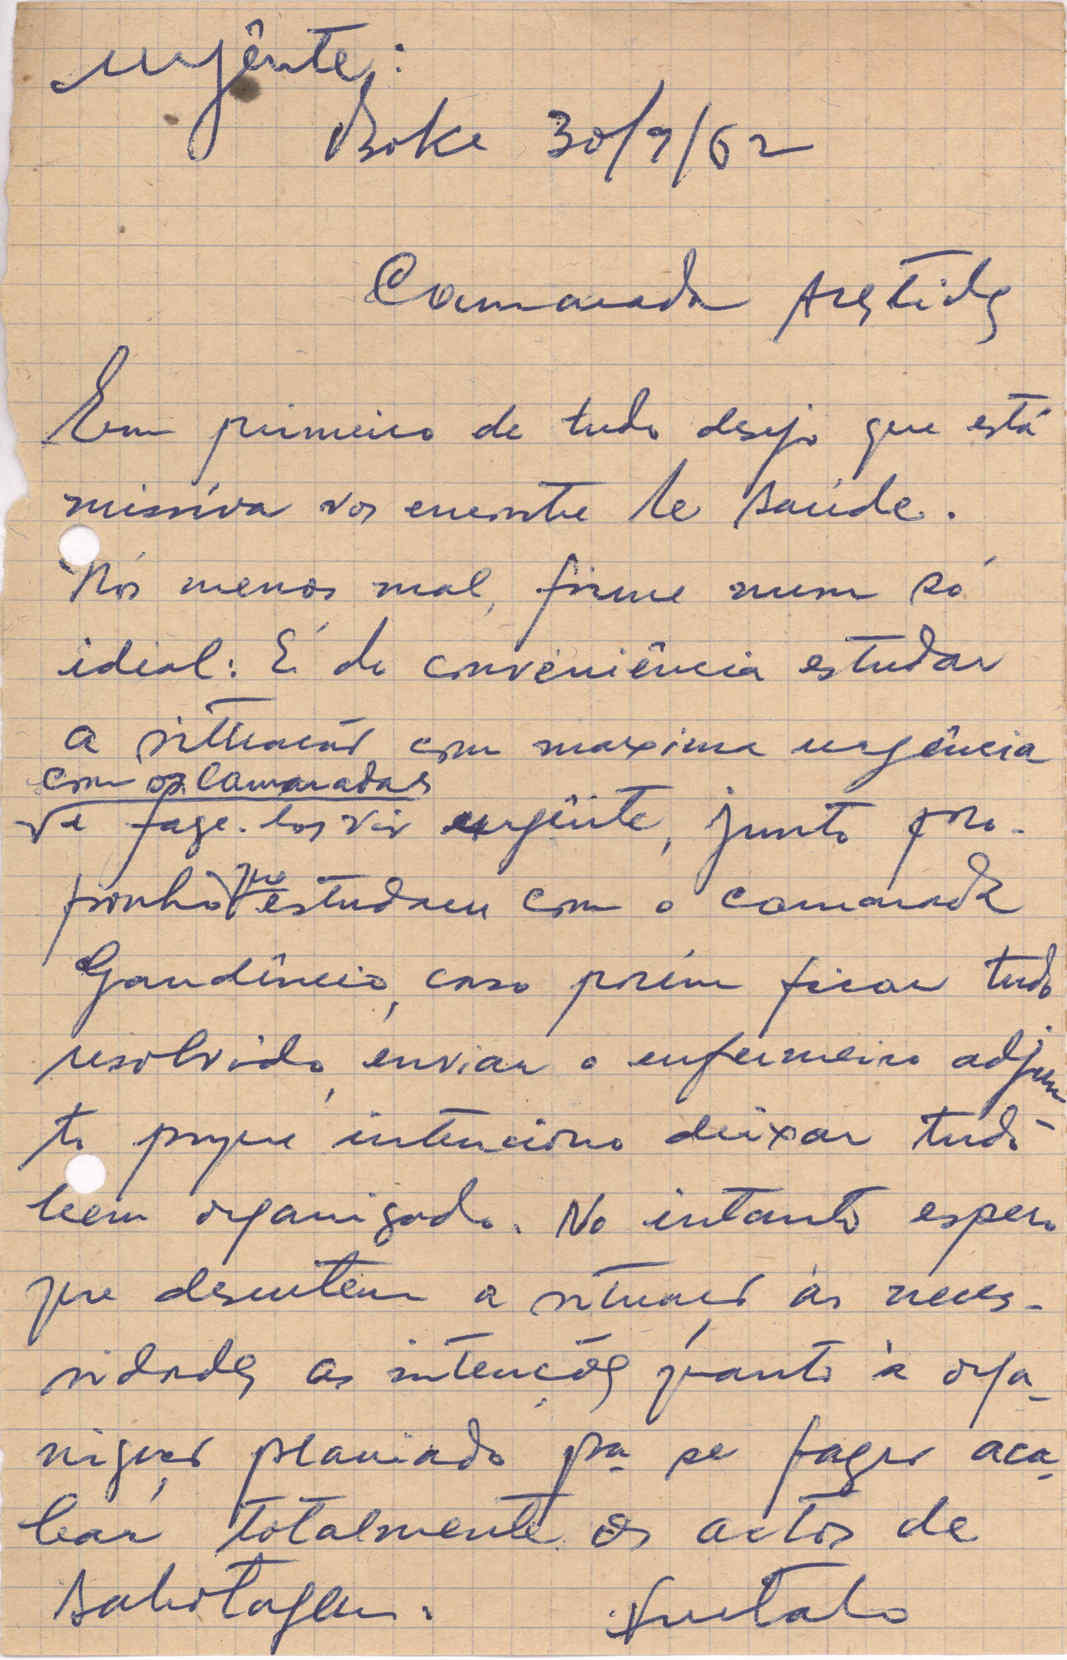 urgênte:
Boke 30/9/62
Camarada Arestides
Em primeiro de tudo desejo que está
missíva vos encontre de saúde.
Nós menos mal, firme num só
ideial: É de conveniência estudar
a situação com maxima urgência
com os Camaradas
vir urgênte, junto pro-
ponho que estudam com o camarada
Gaudêncio, caso porém ficar tudo
resolvido, enviar o enfermeiro adjun-
to porque intenciono deixar tudo
bem organizado. No intanto espero
que descutem a situação as neces-
sidades as intenções quanto à orga-
nização planiado pra se fazer aca-
bar totalmente os actos de
sabotagem.